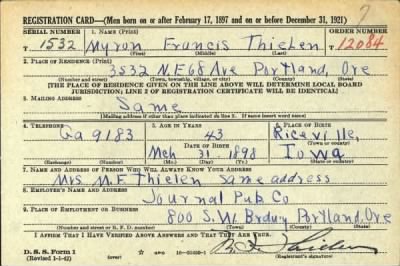 REGISTRATION CARD—(Men born on or after February 17, 1897 and on or before December 31, 1921)
SERIAL NUMBER 1. NAME (Print) ORDER NUMBER
T 1532 Myron Francis Thielen T 12084
(First) (Middle) (Last)
2. PLACE OF RESIDENCE (Print)
3532 N.E 68 Ave Portland, Ore
(Number and street) (Town, township, village, or city) (County) (State)
[THE PLACE OF RESIDENCE GIVEN ON THE LINE ABOVE WILL DETERMINE LOCAL BOARD
JURISDICTION; LINE 2 OF REGISTRATION CERTIFICATE WILL BE IDENTICAL]
3. MAILING ADDRESS
Same
[Mailing address if other than place indicated on line 2. If same insert word same]
4. TELEPHONE 5. AGE IN YEARS 6. PLACE OF BIRTH
Ga 9183 43 Riceville,
DATE OF BIRTH (Town or county)
Mch 31 1898 Iowa
(Exchange) (Number) (Mo.) (Day) (Yr.) (State or country)
7. NAME AND ADDRESS OF PERSON WHO WILL ALWAYS KNOW YOUR ADDRESS
Mrs M. F Thielen Same address
8. EMPLOYER'S NAME AND ADDRESS
Journal Pub Co
9. PLACE OF EMPLOYMENT OR BUSINESS
800 S.W. Brdwy Portland, Ore
(Number and street or R. F. D. number) (Town) (County) (State)
I AFFIRM THAT I HAVE VERIFIED ABOVE ANSWERS AND THAT THEY ARE TRUE.
D. S. S. Form 1
(Revised 1-1-42) (over)